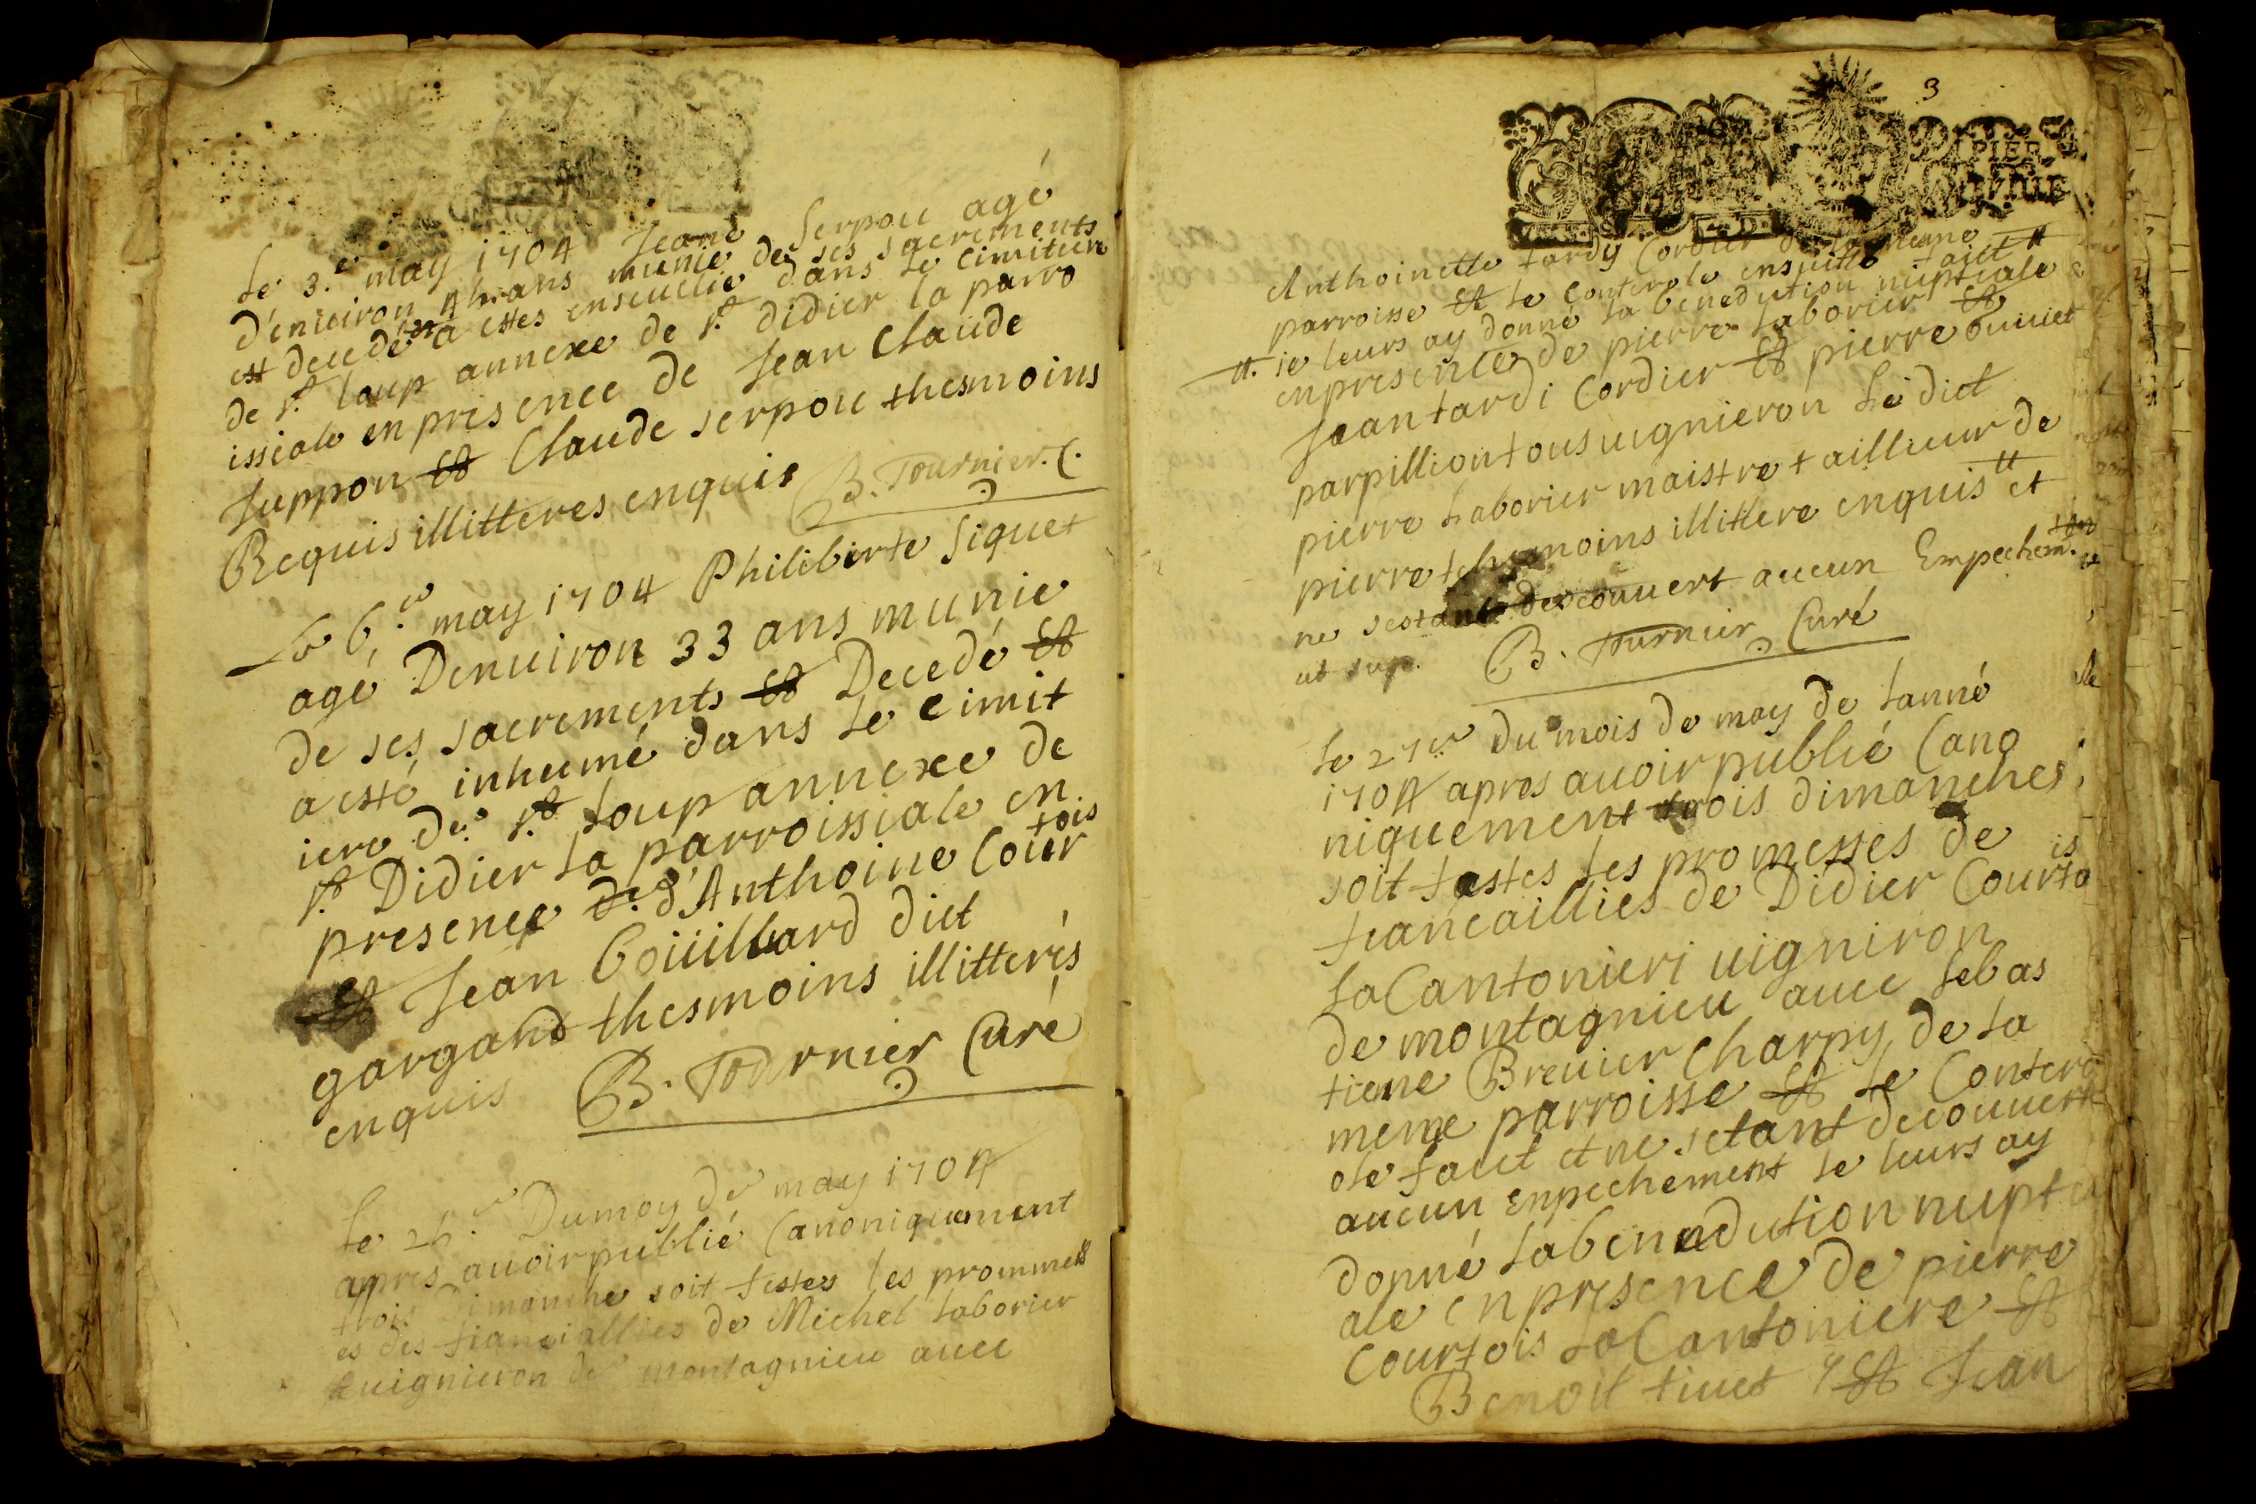 Le 3.e may 1704 Jeane Serpou agé
d'enuiron ans munie de ses sacrements
est decedé a estes enseuelie dans le cimitiere
de st loup annexe de st didier la parro
issiale en presence de Jean Claude
suppon et Claude serpou thesmoins
Requis illitteres enquis B. Tournier. C.
Le 6.e may 1704 Philiberte Siquet
agé Denuiron 33 ans munie
de ses sacrements et Decedé et
a esté inhumé dans le cimit
iere de st loup annexe de
st Didier la parroissiale en
presence de d'Anthoine Cour
tois
et Jean Goüillard dict
gargand thesmoins illitterés
enquis B. Tournier Curé
Le 26.e Dumoy de may 1704
apres auoir publié Canoniquement
trois dimanche soit festes les prommess
es des fianciallies de Michel laborier
uignieron de montagnieu auec
3
PAPIER
Anthoinette tardy Cordier de la mesme
parroisse et le conterole ensuitte faict
je leurs ay donné la benediction nuptiale
en presence de pierre laborier et
Jean tardi Cordier et pierre
parpillion tous uignieron Le dict
pierre laborier maistre taillieur de
pierre thesmoins illitere enquis et
ne sestant descouuert aucun Empechem.t
ut sup. B. Tournier Curé
Le 27.e du mois de may de lanné
1704 apres auoir publié Cano
niquement trois dimanches
soit festes les promesses de
fiancaillies de Didier Courto
is
la Cantonieri uigniron
de montagnieu auec sebas
tiene Breuier Charpy de la
meme parroisse et le Contero
ole faict et ne setant decouuert
aucun enpechement Je leurs ay
donné la benediction nupti
ale en presence de pierre
Courtois la Cantoniere et
Benoit tiuet et Jean